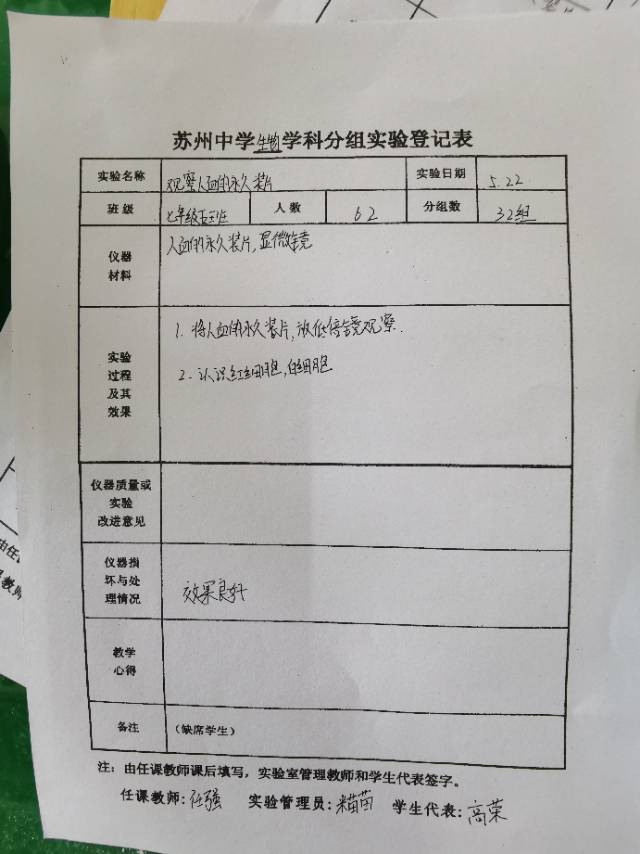 苏州中学生物学科分组实验登记表
实验名称 观察人血的永久装片 实验日期 5.22
班级 七年级五班 人数 62 分组数 32组
仪器
材料
人血的永久装片,显微镜
实验
过程
及其
效果
1. 将人血的永久装片,放低倍镜观察.
2. 认识红细胞,白细胞
仪器质量或
实验
改进意见
仪器损
坏与处
理情况
效果良好
教学
心得
备注 (缺席学生)
注:由任课教师课后填写,实验室管理教师和学生代表签字。
任课教师:任强 实验管理员: 学生代表:高荣